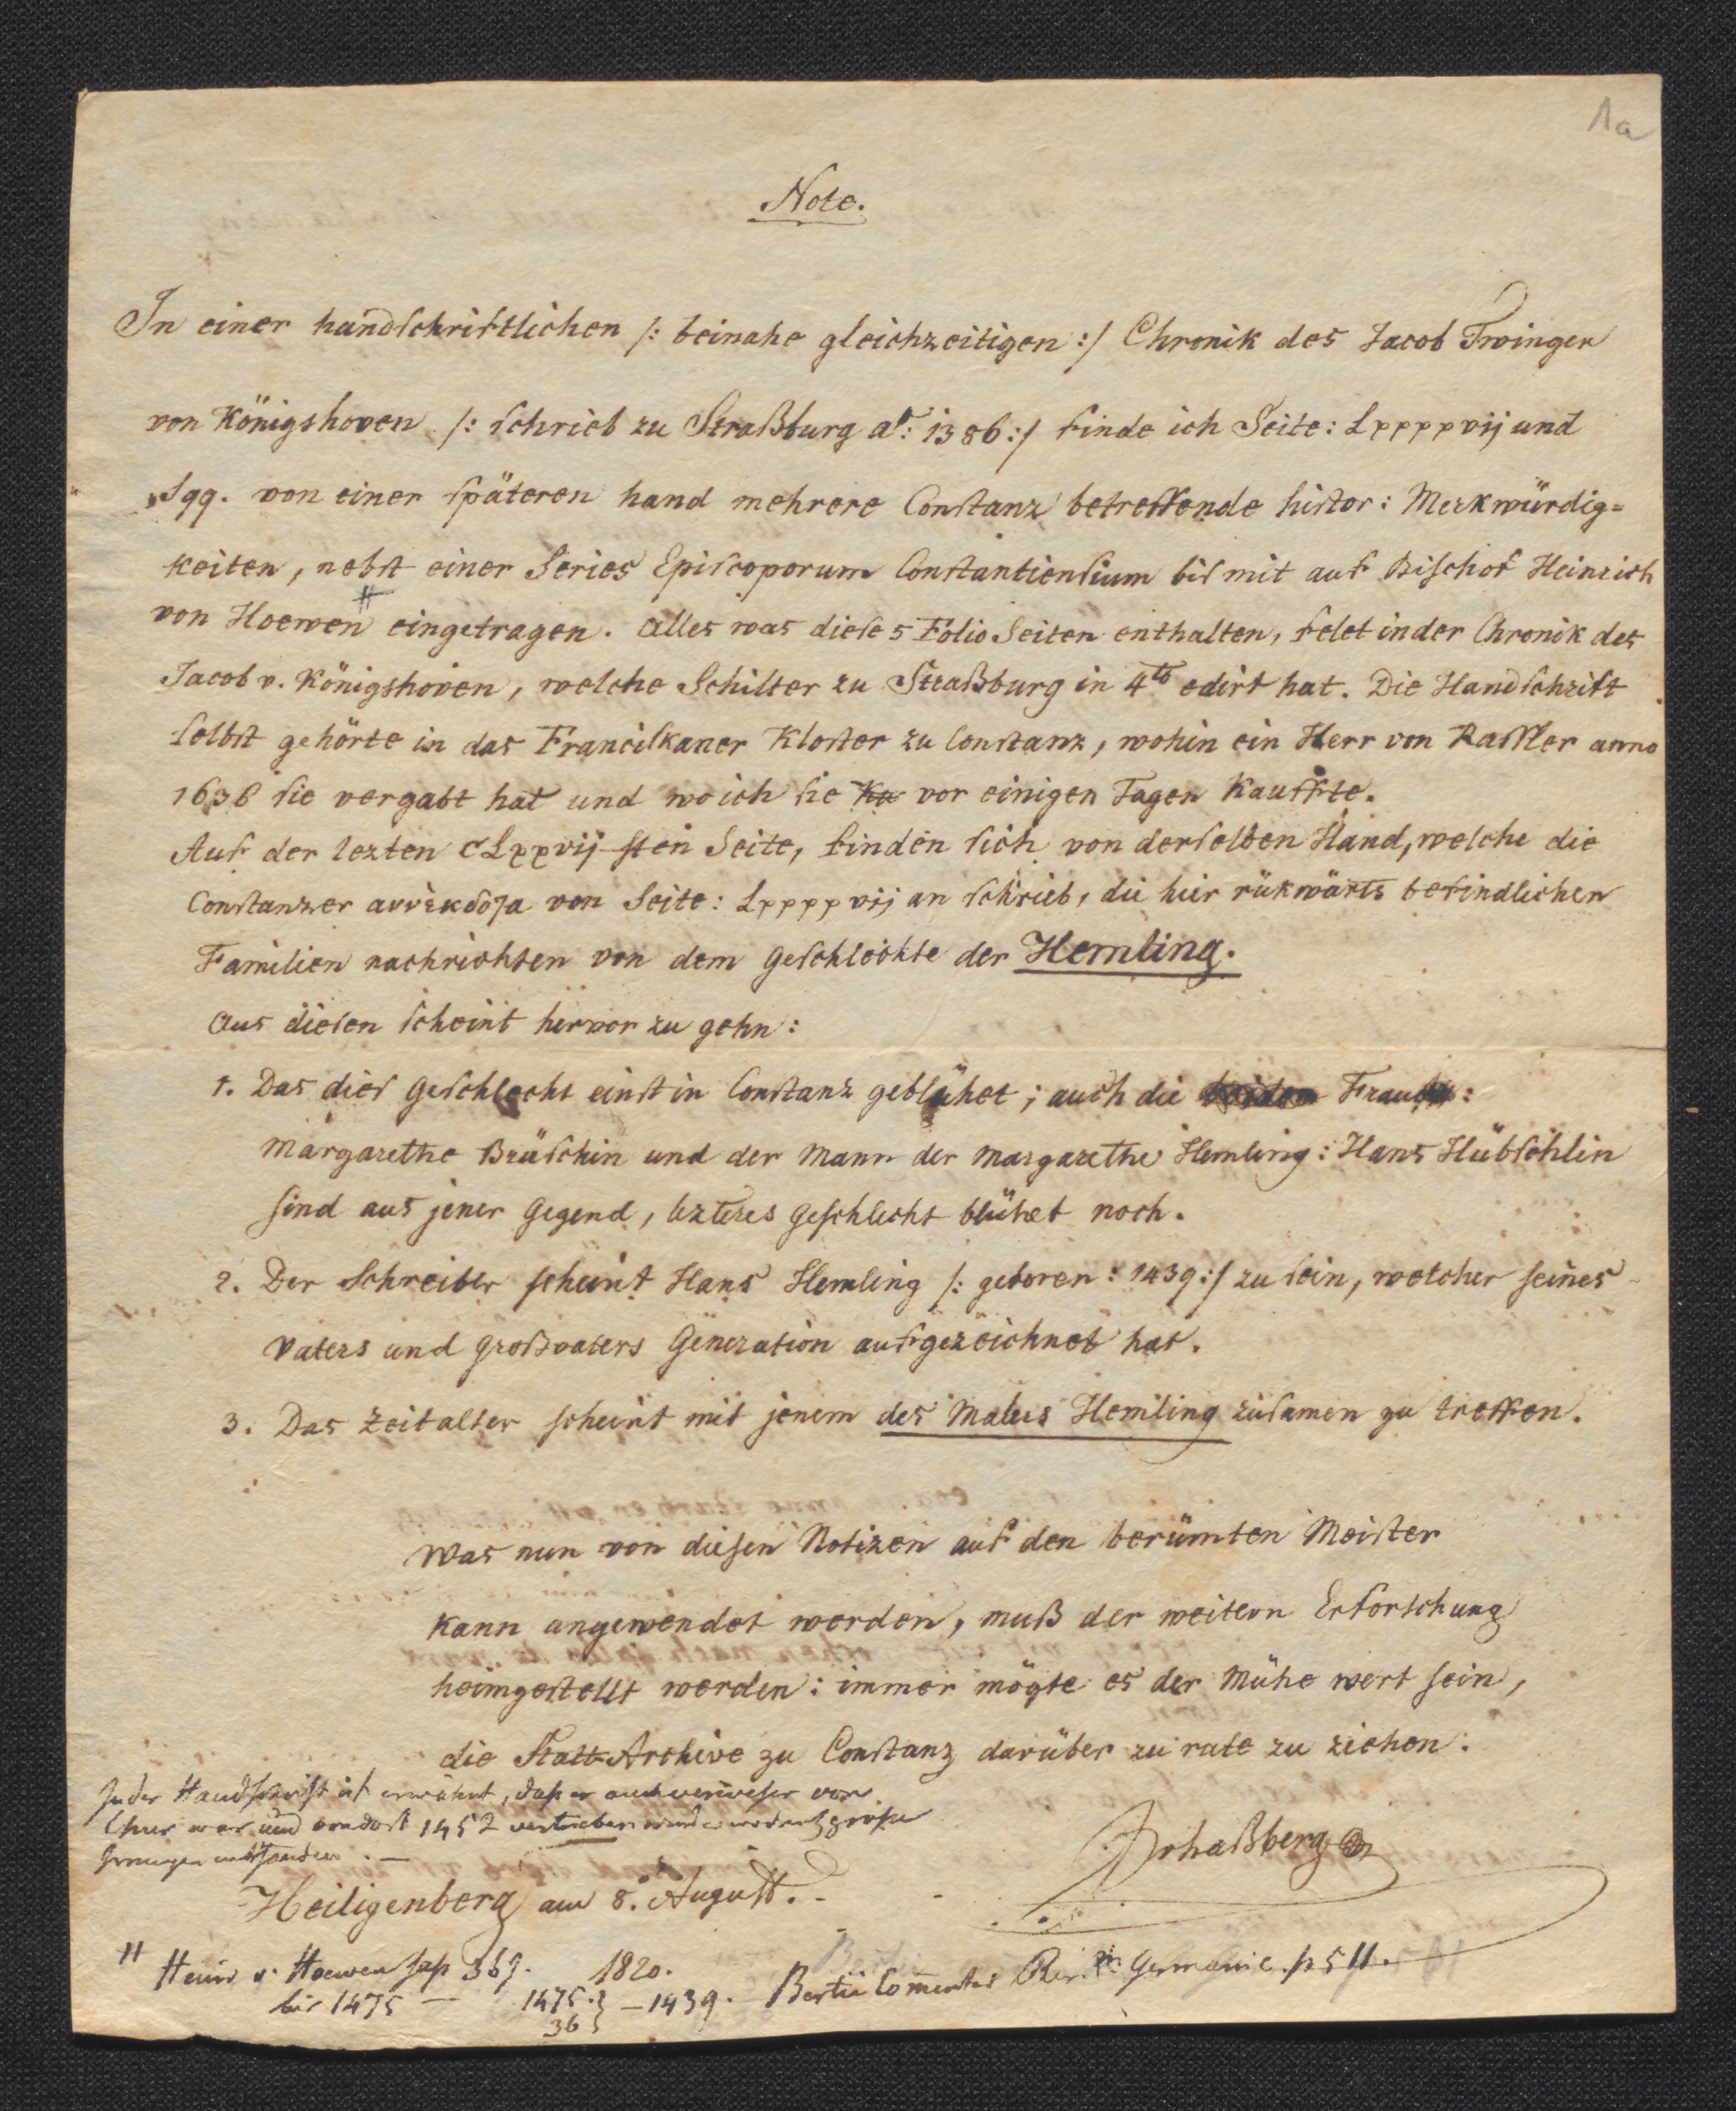 1a
Note.
In einer handschriftlichen /: beinahe gleichzeitigen :/ Chronik des Jacob Twinger
von Königshoven /: schrieb zu Straßburg aº: 1386 :/ finde ich Seite: Lxxxxvij und
sqq. von einer späteren hand mehrere Constanz betreffende histor: Merkwürdig=
keiten, nebst einer Series Episcoporum Constantiensium bis mit auf Bischof Heinrich
von Hoewen # eingetragen. Alles was diese 5 Folio Seiten enthalten, felet in der Chronik des
Jacob v. Königshoven, welche Schilter zu Straßburg in 4to edirt hat. Die Handschrift
selbst gehörte in das Franciskaner Kloster zu Constanz, wohin ein Herr von Rassler anno
1636 sie vergabt hat und wo ich sie ka vor einigen Tagen kauffte.
Auf der lezten CLxxvij sten Seite, finden sich von derselben Hand, welche die
Constanzer ανεκδοτα von Seite: Lxxxxvij an schrieb, die hier rükwärts befindlichen
Familien nachrichten von dem Geschlechte der Hemling.
Aus diesen scheint hervor zu gehn:
1. Das dies Geschlecht einst in Constanz geblühet; auch die beiden Frau:
Margarethe Bräschin und der Mann der Margarethe Hemling: Hans Hübschlin
sind aus jener Gegend, lezteres Geschlecht blühet noch.
2. Der Schreiber scheint Hans Hemling /: geboren: 1439 :/ zu sein, welcher seines
Vaters und Großvaters Generation aufgezeichnet hat.
3. Das Zeitalter scheint mit jenem des Malers Hemling zusamen zu treffen.
Was nun von diesen Notizen auf den berümten Meister
kann angewendet werden, muß der weitern Erforschung
heimgestellt werden: immer mögte es der Mühe wert sein,
die Statt-Archive zu Constanz darüber zu rate zu ziehen.
In der Handschrift ist erwähnt, daß er auch verweser von
Chur war und 1452 vertrieben
Schaßberg
Heiligenberg am 8. August.
# Heinr v. Hoewen 36 j. 1820.
bis 1475 — 1475. } — 1439. Bertii Comentar Rer. Germanic. p 511.
36 }